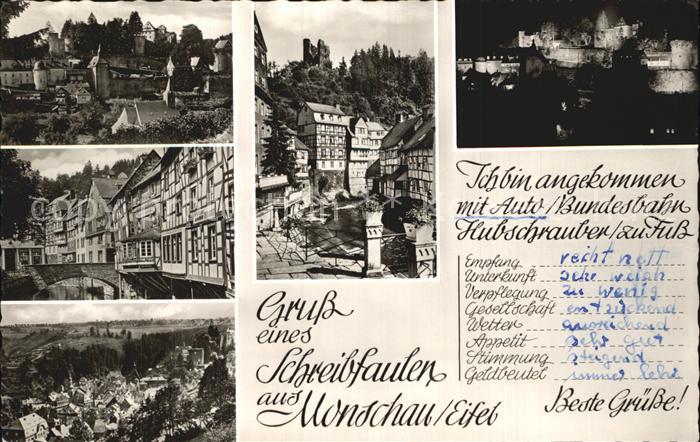 Ich bin angekommen
mit Auto/Bundesbahn
Hubschrauber/zu Fuß
Empfang recht nett
Unterkunft sehr weich
Verpflegung zu wenig
Gesellschaft entzückend
Wetter ausreichend
Appetit sehr gut
Stimmung steigend
Geldbeutel immer leer
Beste Grüße!
Gruß
eines
Schreibfaulen
aus
Monschau/Eifel